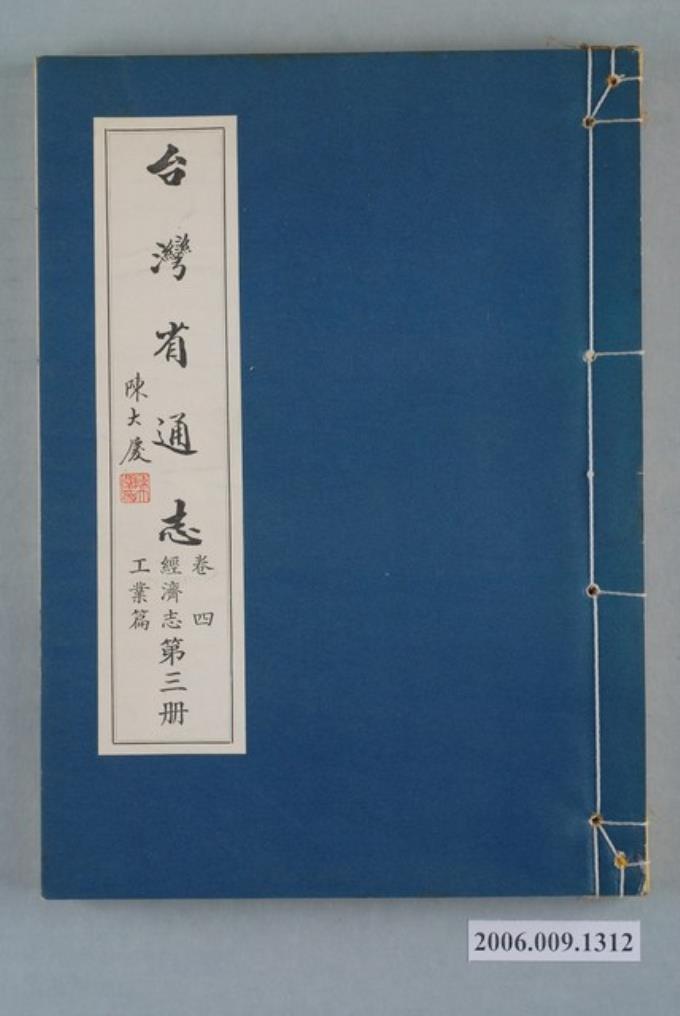 台灣省通志
卷四
經濟志
工業篇
第三册
陳大慶
2006.009.1312